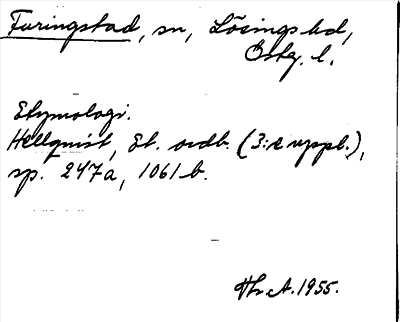 Furingstad, sn, Lösings hd,
Östg. l.
Etymologi.
Hellquist, Et. ordb. (3:e uppl.),
sp. 247a, 1061 b.
Hr. A. 1955.